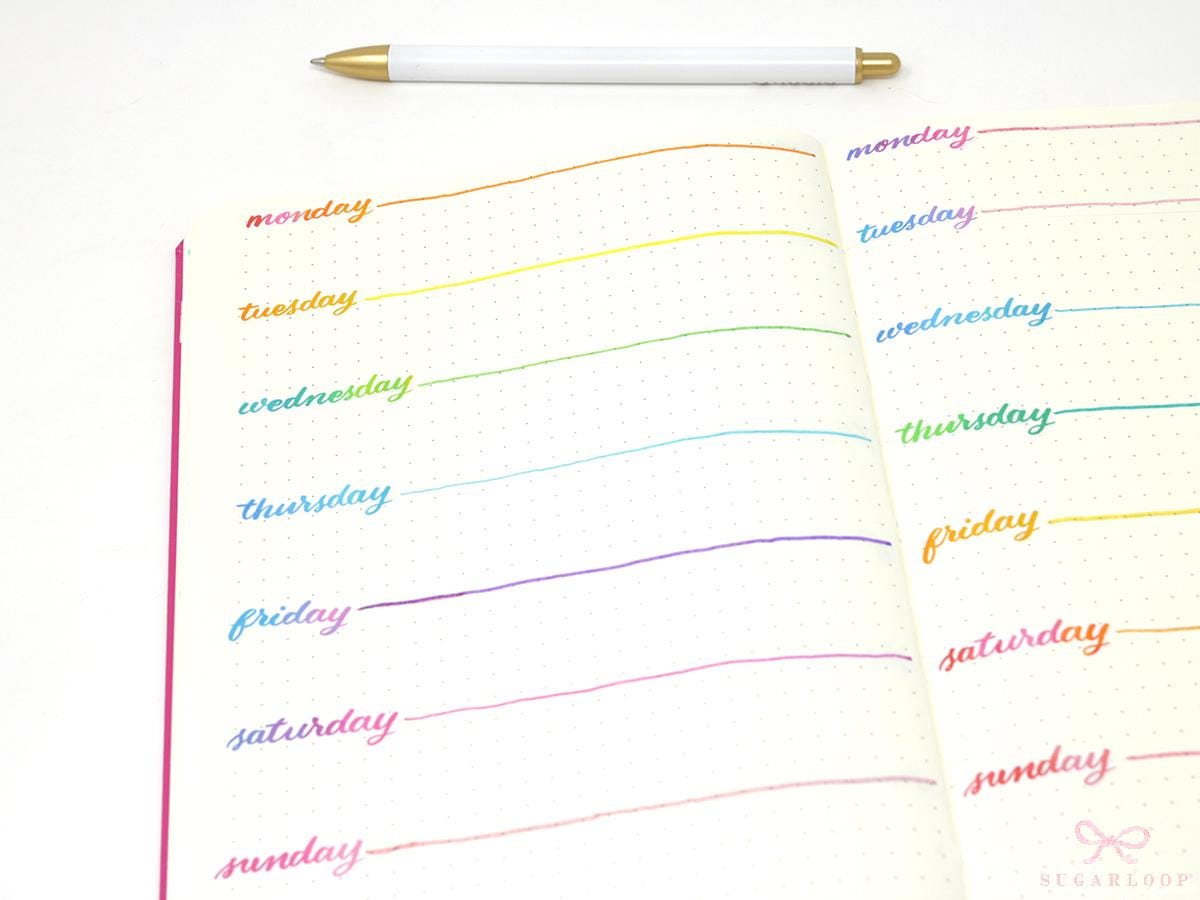 monday
tuesday
wednesday
thursday
friday
saturday
sunday
monday
tuesday
wednesday
thursday
friday
saturday
sunday
SUGARLOOP